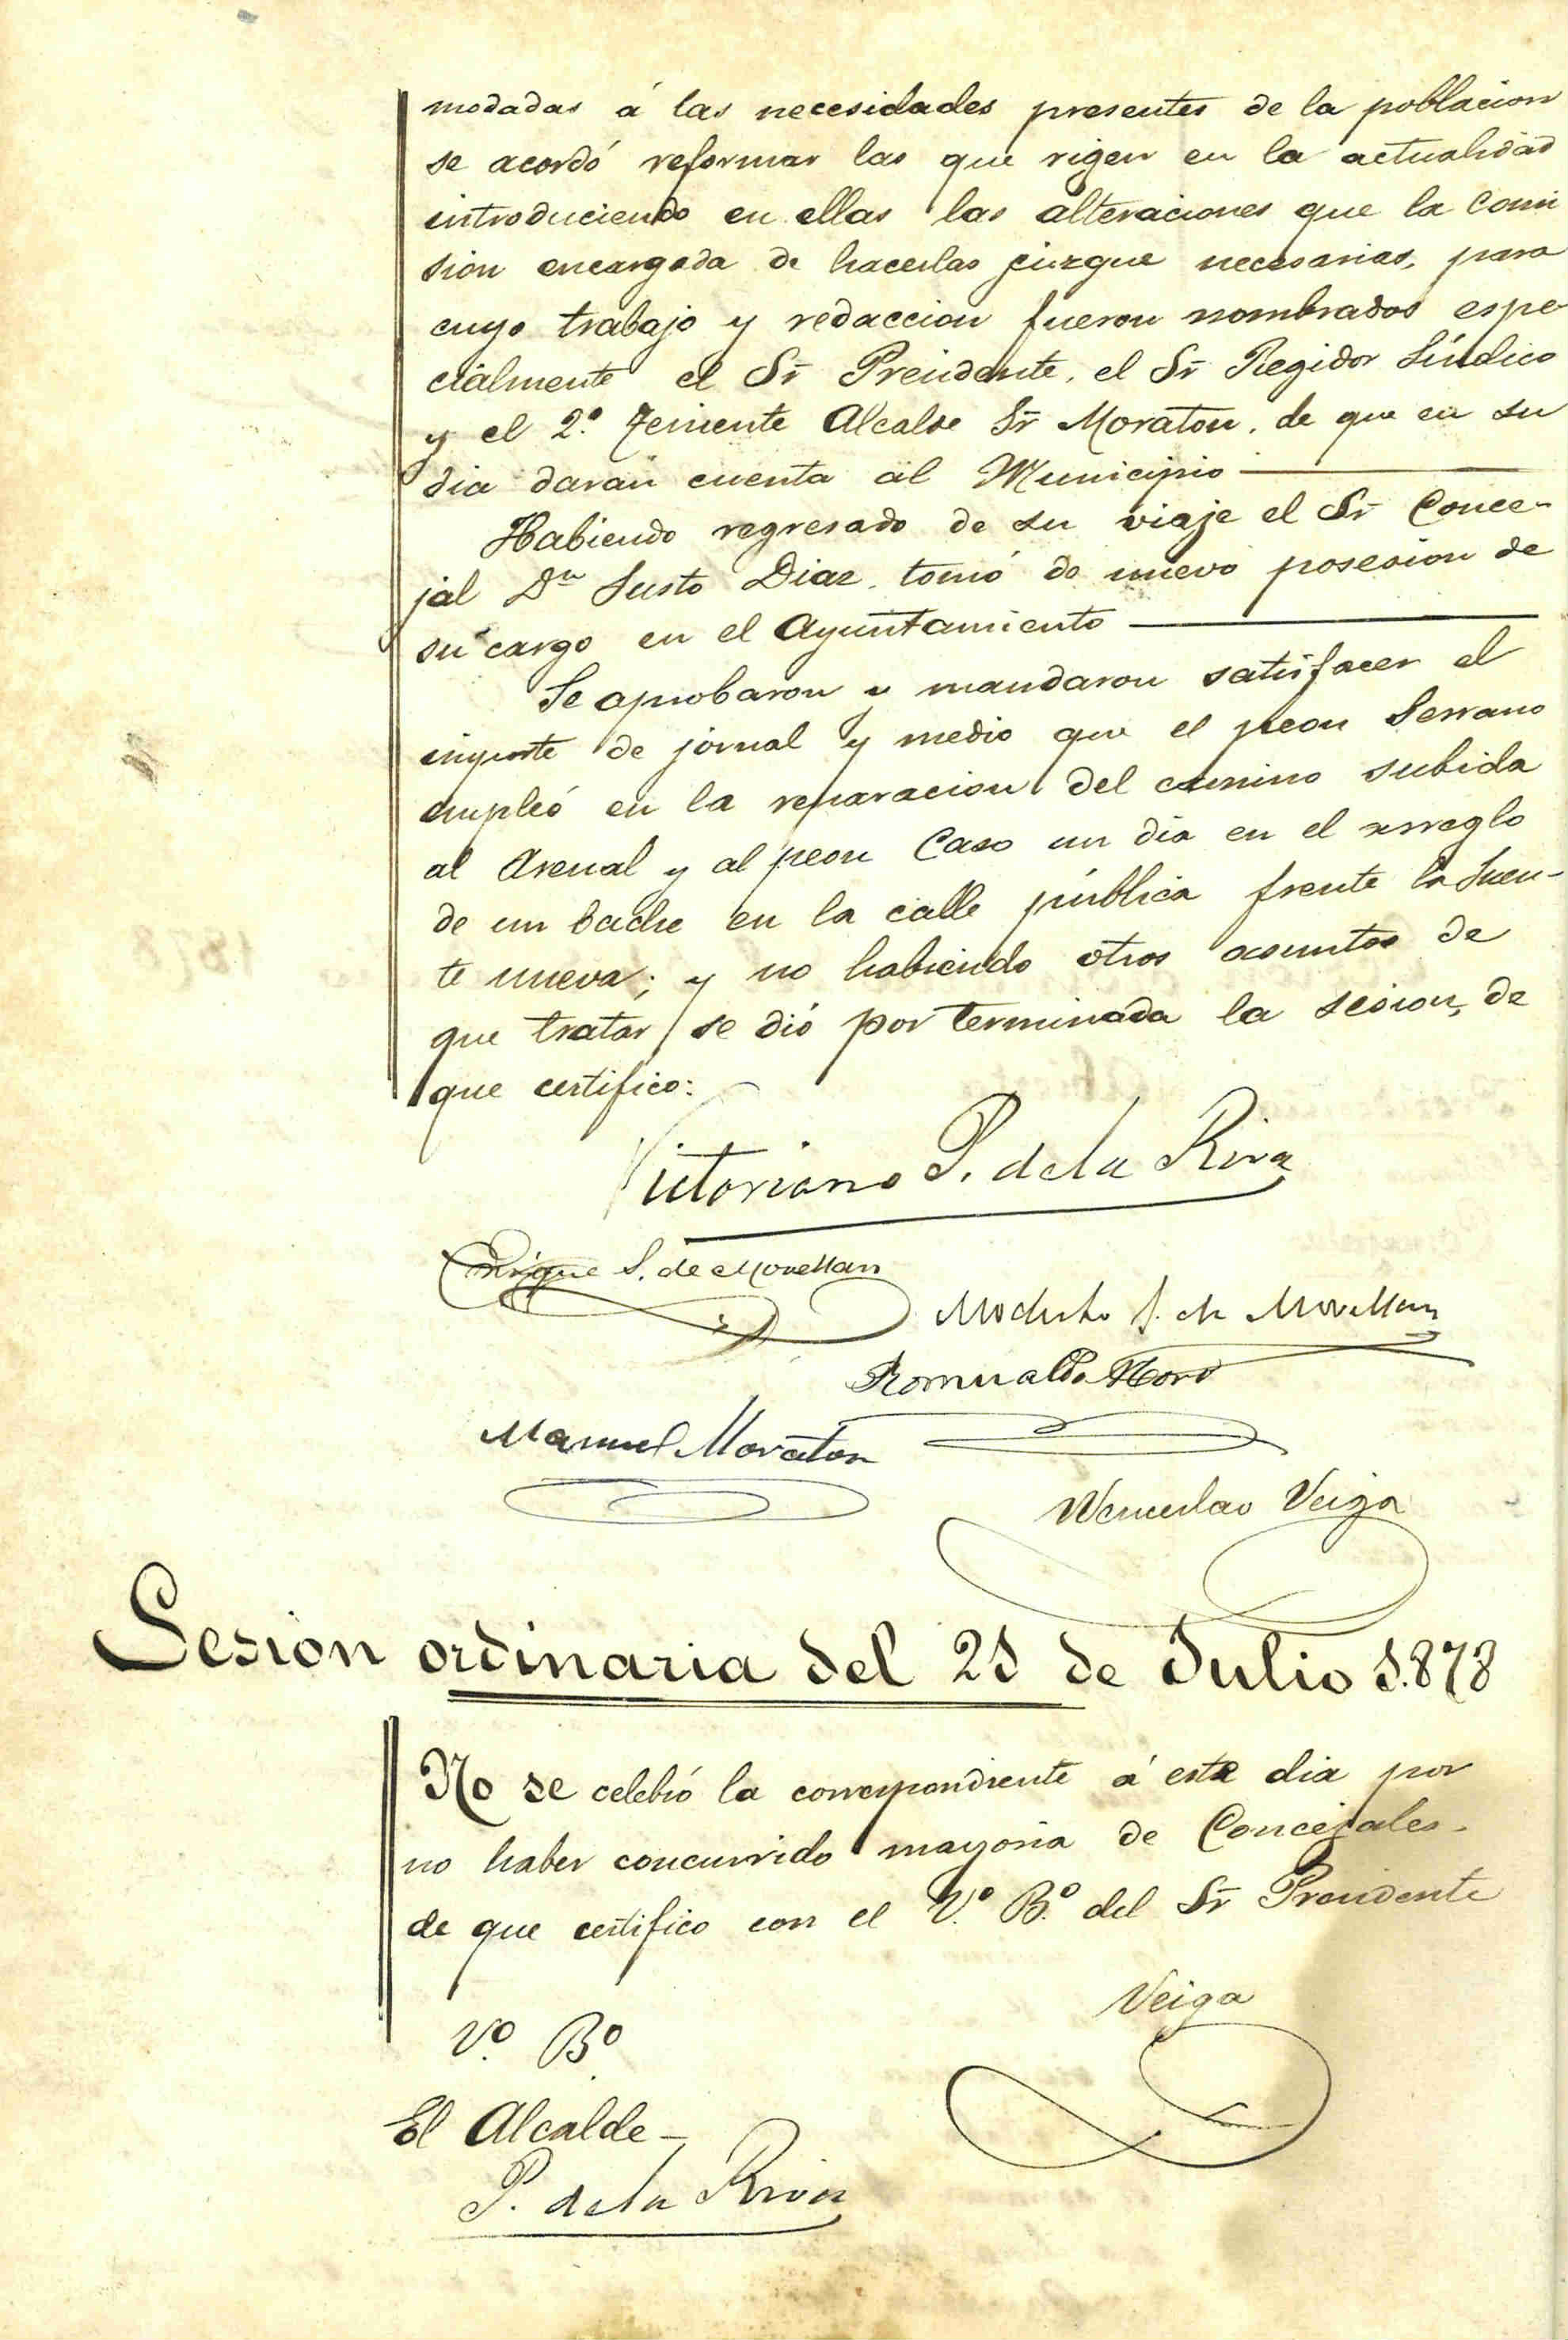 modadas á las necesidades presentes de la poblacion
se acordó reformar las que rigen en la actualidad
introduciendo en ellas las alteraciones que la Comi
sion encargada de hacerlas juzgue necesarias, para
cuyo trabajo y redaccion fueron nombrados espe-
cialmente el Sr Presidente, el Sr Regidor Síndico
y el 2.º Teniente Alcalde Sr Moraton, de que en su
dia darán cuenta al Municipio
Habiendo regresado de su viaje el Sr Conce-
jal Dn Justo Diaz, tomó de nuevo posesion de
su cargo en el Ayuntamiento
Se aprobaron y mandaron satisfacer el
importe de jornal y medio que el peon Serrano
empleó en la reparacion del camino subida
al Arenal y al peon Caso un dia en el arreglo
de un bache en la calle pública frente la fuen-
te nueva; y no habiendo otros asuntos de
que tratar, se dió por terminada la sesion, de
que certifico:
Victoriano P. de la Riva
Enrique S. de Movellan
Modesto S. de Movellan
Romualdo Moro
Manuel Moraton
Wenceslao Veiga
Sesion ordinaria del 21 de Julio 1.878
No se celebró la correspondiente á este dia por
no haber concurrido mayoria de Concejales.
de que certifico con el V.º B.º del Sr Presidente
Veiga
V.º B.º
El Alcalde
P. de la Riva